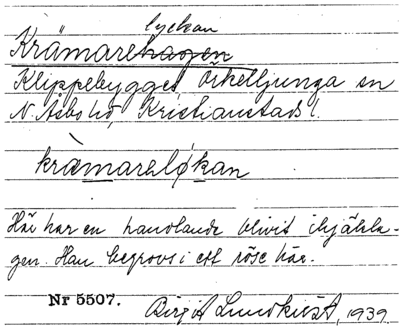 lyckan
Krämarehagen
Klippebygget Örkelljunga sn
N. Åsbo hd, Kristianstads l.
kràmareløkan
Här har en handlande blivit ihjälsla-
gen. Han begrovs i ett röse här.
Nr 5507.
Birgit Lundkvist, 1939